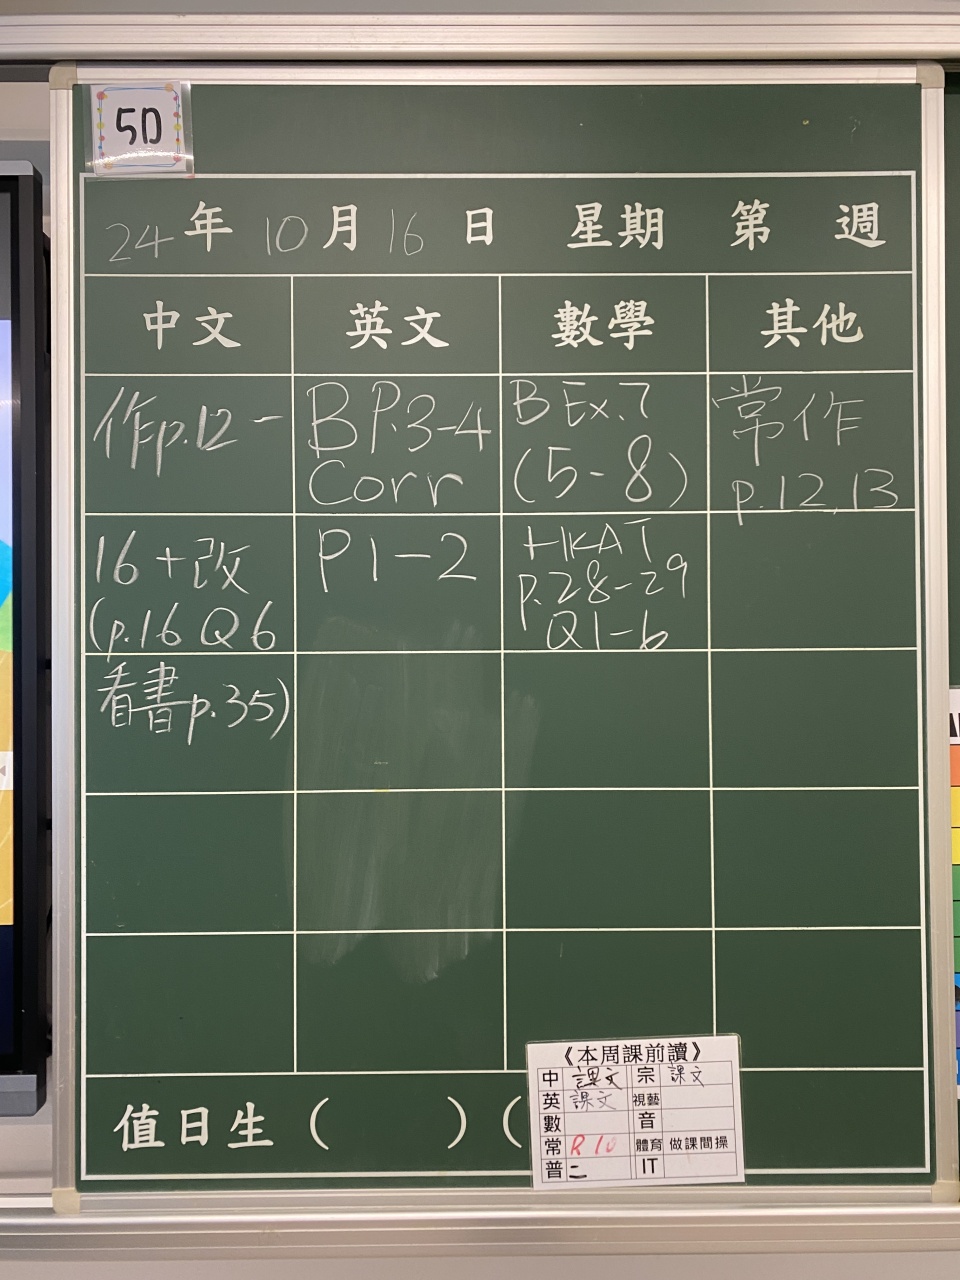 5D
24年 10月 16日 星期 第 週
中文 英文 數學 其他
作p.12-
16+改
(p.16 Q6
看書p.35)
BP.3-4
Corr
P1-2
B Ex.7
(5-8)
HKAT
p.28-29
Q1-6
常作
p.12,13
值日生 ( ) (
《本周課前讀》
中 課文 宗 課文
英 課文 視藝
數 音
常 R 10 體育 做課間操
普 二 IT